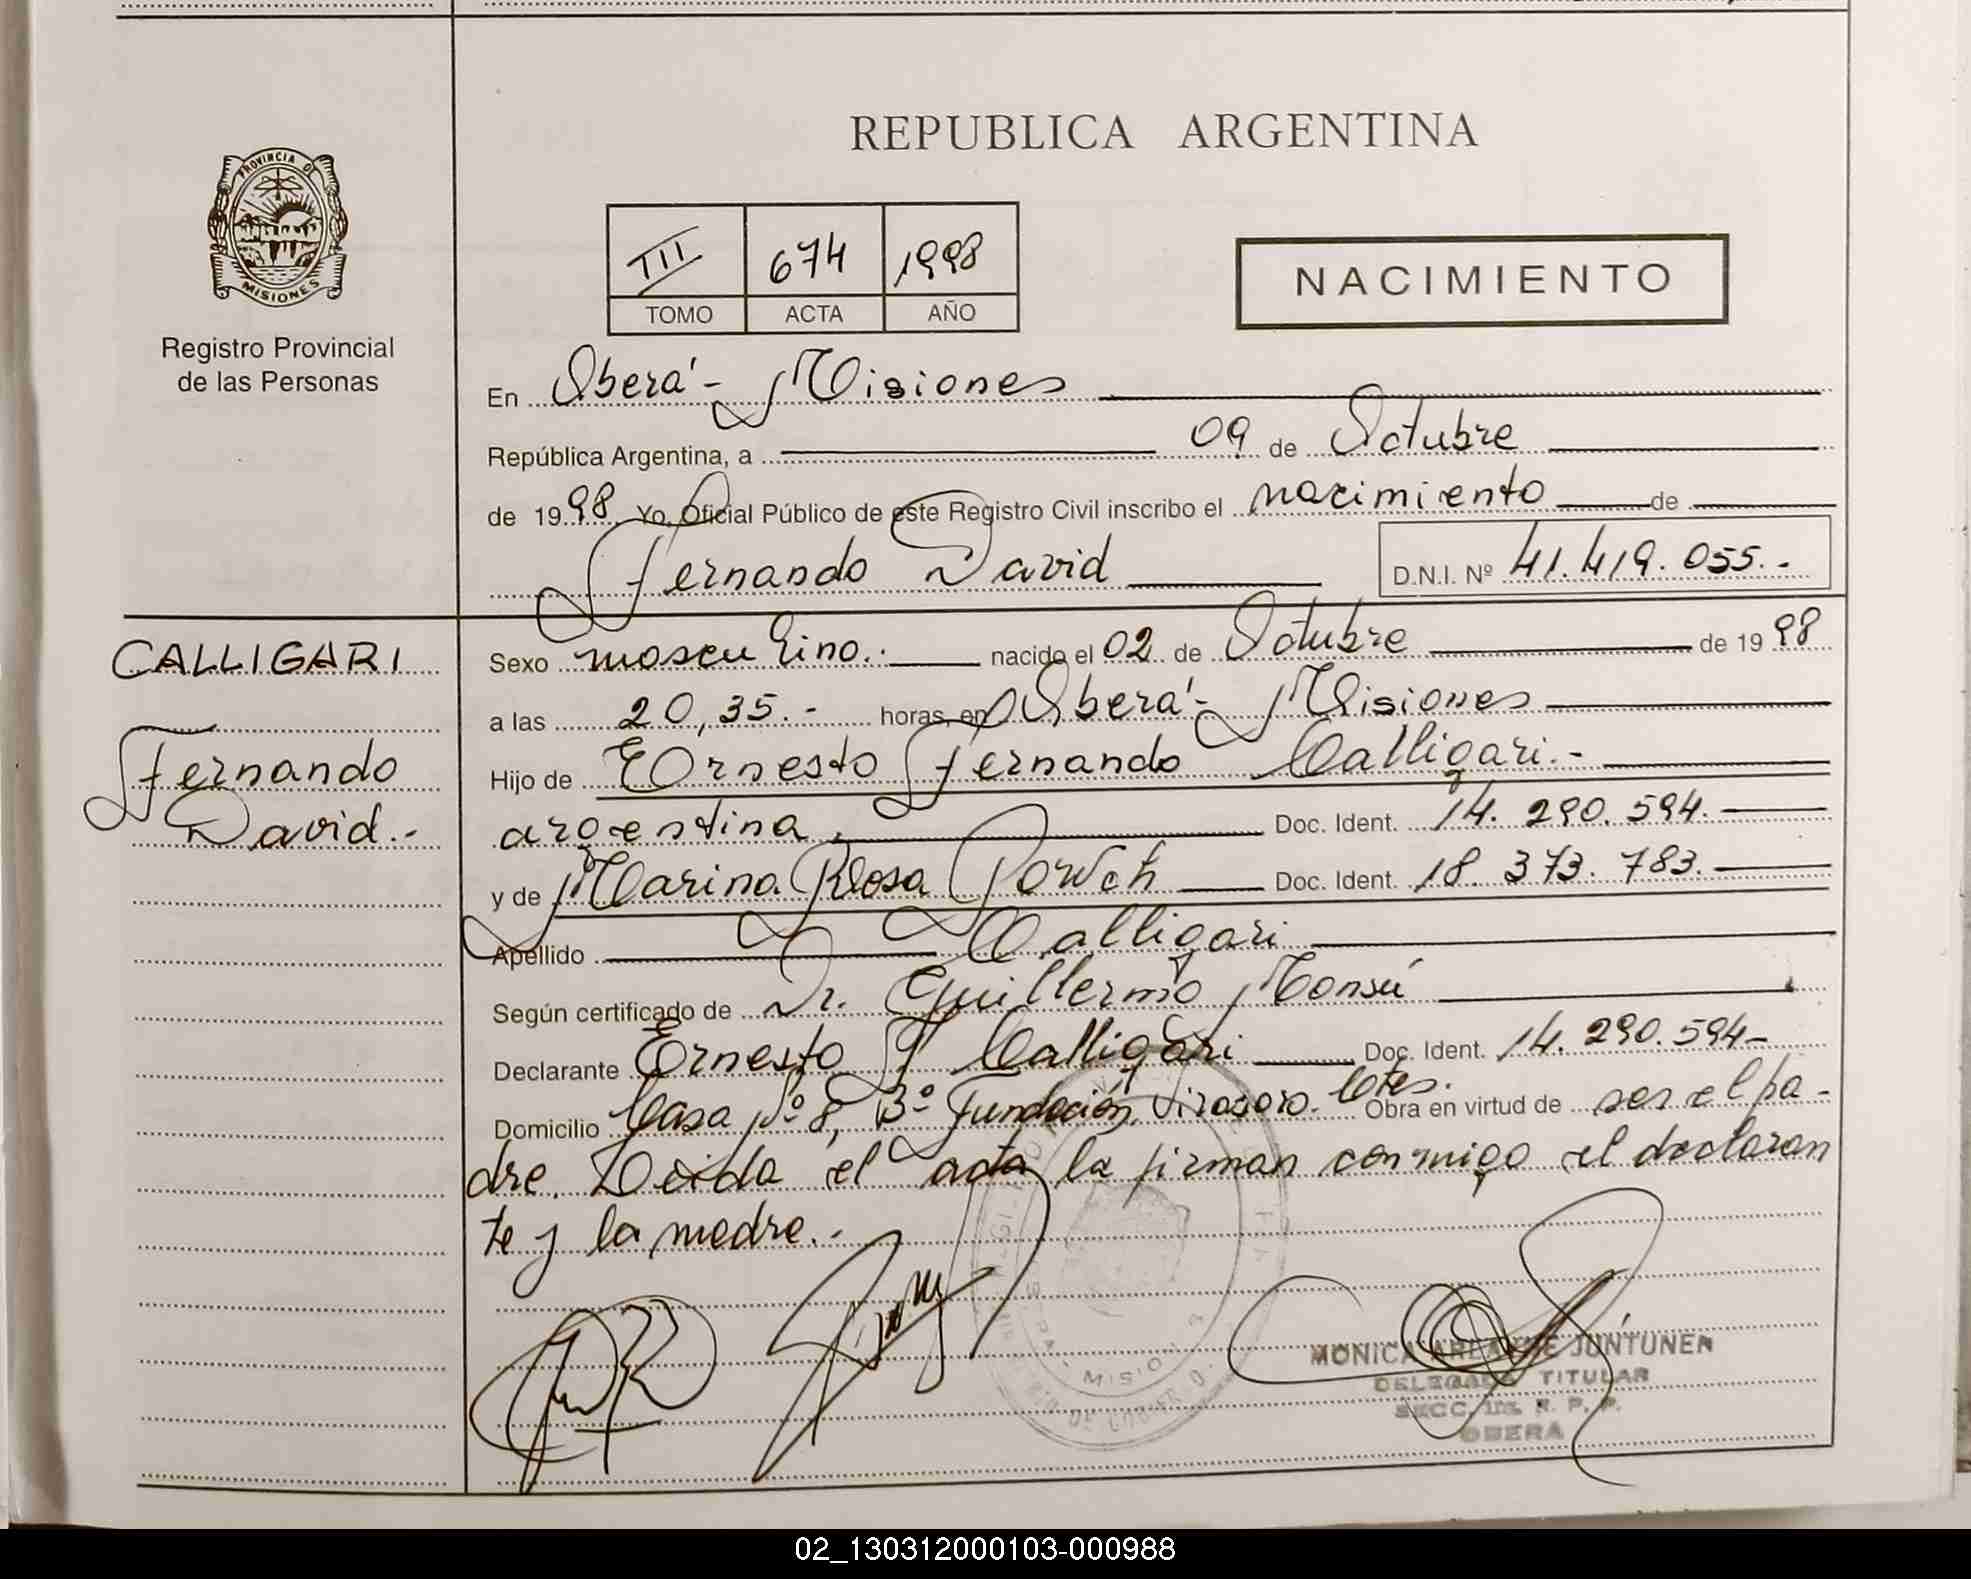 REPUBLICA ARGENTINA
PROVINCIA DE
MISIONES
Registro Provincial
de las Personas
III 674 1998
TOMO ACTA AÑO
NACIMIENTO
En Oberá - Misiones
República Argentina, a 09 de Octubre
de 1998 Yo, Oficial Público de este Registro Civil inscribo el nacimiento de
Fernando David D.N.I. Nº 41.419.055.-
CALLIGARI
Fernando
David.-
Sexo masculino.- nacido el 02 de Octubre de 1998
a las 20,35.- horas, en Oberá - Misiones
Hijo de Ernesto Fernando Calligari.-
argentina, Doc. Ident. 14.290.594.
y de Marina Rosa Doc. Ident. 18.373.783.
Apellido Calligari
Según certificado de Dr. Guillermo Monsú
Declarante Ernesto F Calligari Doc. Ident. 14.290.594-
Domicilio Casa Nº 8, Bº Fundación, Virasoro. Ctes. Obra en virtud de ser el pa-
dre. Leida el acta la firman conmigo el declaran
te y la madre.-
MISIO
MONICA DE JUNTUNEN
DELEGADA TITULAR
SECC. R. P. P.
OBERA
02_130312000103-000988